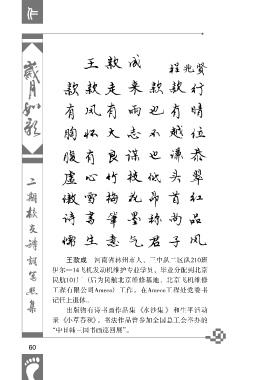 王敦成
程兆贤
款款走来款款行
有风有雨也有晴
胸怀大志不越位
腹有良谋也谦恭
虚心竹枝低头翠
傲雪梅花昂首红
诗书笔墨称尚品
儒生意气君子风
岁月如歌
二期校友诗词写照集
王敦成 河南省林州市人、三中队二区队210班
伊尔—14飞机发动机维护专业学员。毕业分配到北京
民航101厂（后为民航北京维修基地、北京飞机维修
工程有限公司Ameco）工作。在Ameco工程处党委书
记任上退休。
出版德有诗书画作品集《水抄集》和生平活动
录《小草春秋》。书法作品曾参加全国总工会举办的
“中日韩三国书画巡回展”。
60